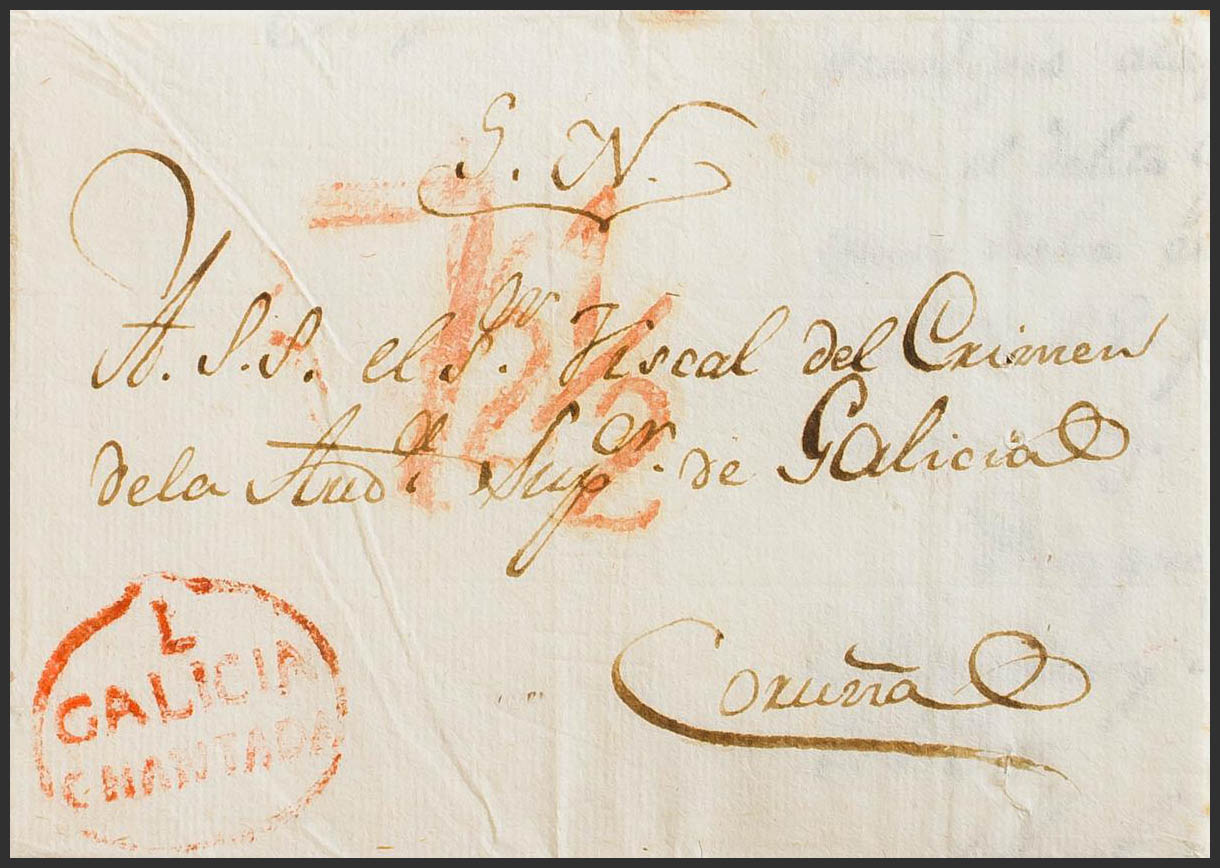 S. N.
A. S. S. el S.or Fiscal del Crimen
de la Aud.a Sup.or de Galicia
Coruña
L
GALICIA
CHANTADA